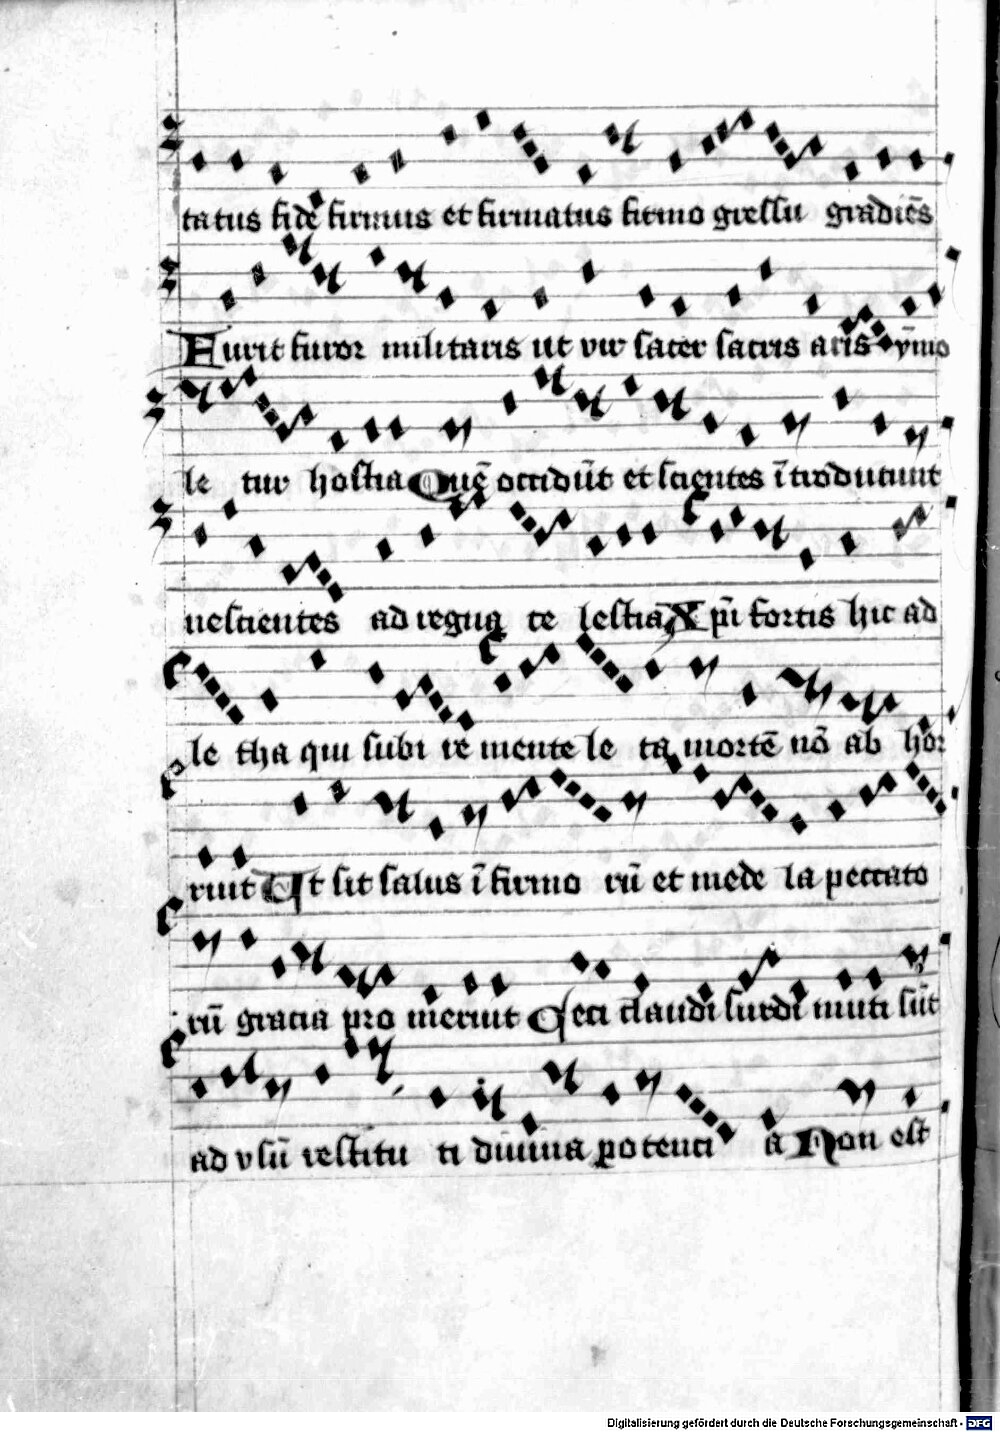 tatus fidē firmus et firmatus firmo gressu gradiēs
Furit furor militaris ut vir sacer sacris aris ymo
le tur hostia Quē occidūt et scientes ītroducunt
nescientes ad regna ce lestia Xpi fortis hic ad
le tha qui subi re mente le ta mortē nō ab hor
ruit Ut sit salus ī firmo rū et mede la peccato
rū gracia pro meruit Ceci claudi surdi muti sūt
ad vsū restitu ti diuina potenci a Non est
Digitalisierung gefördert durch die Deutsche Forschungsgemeinschaft - DFG